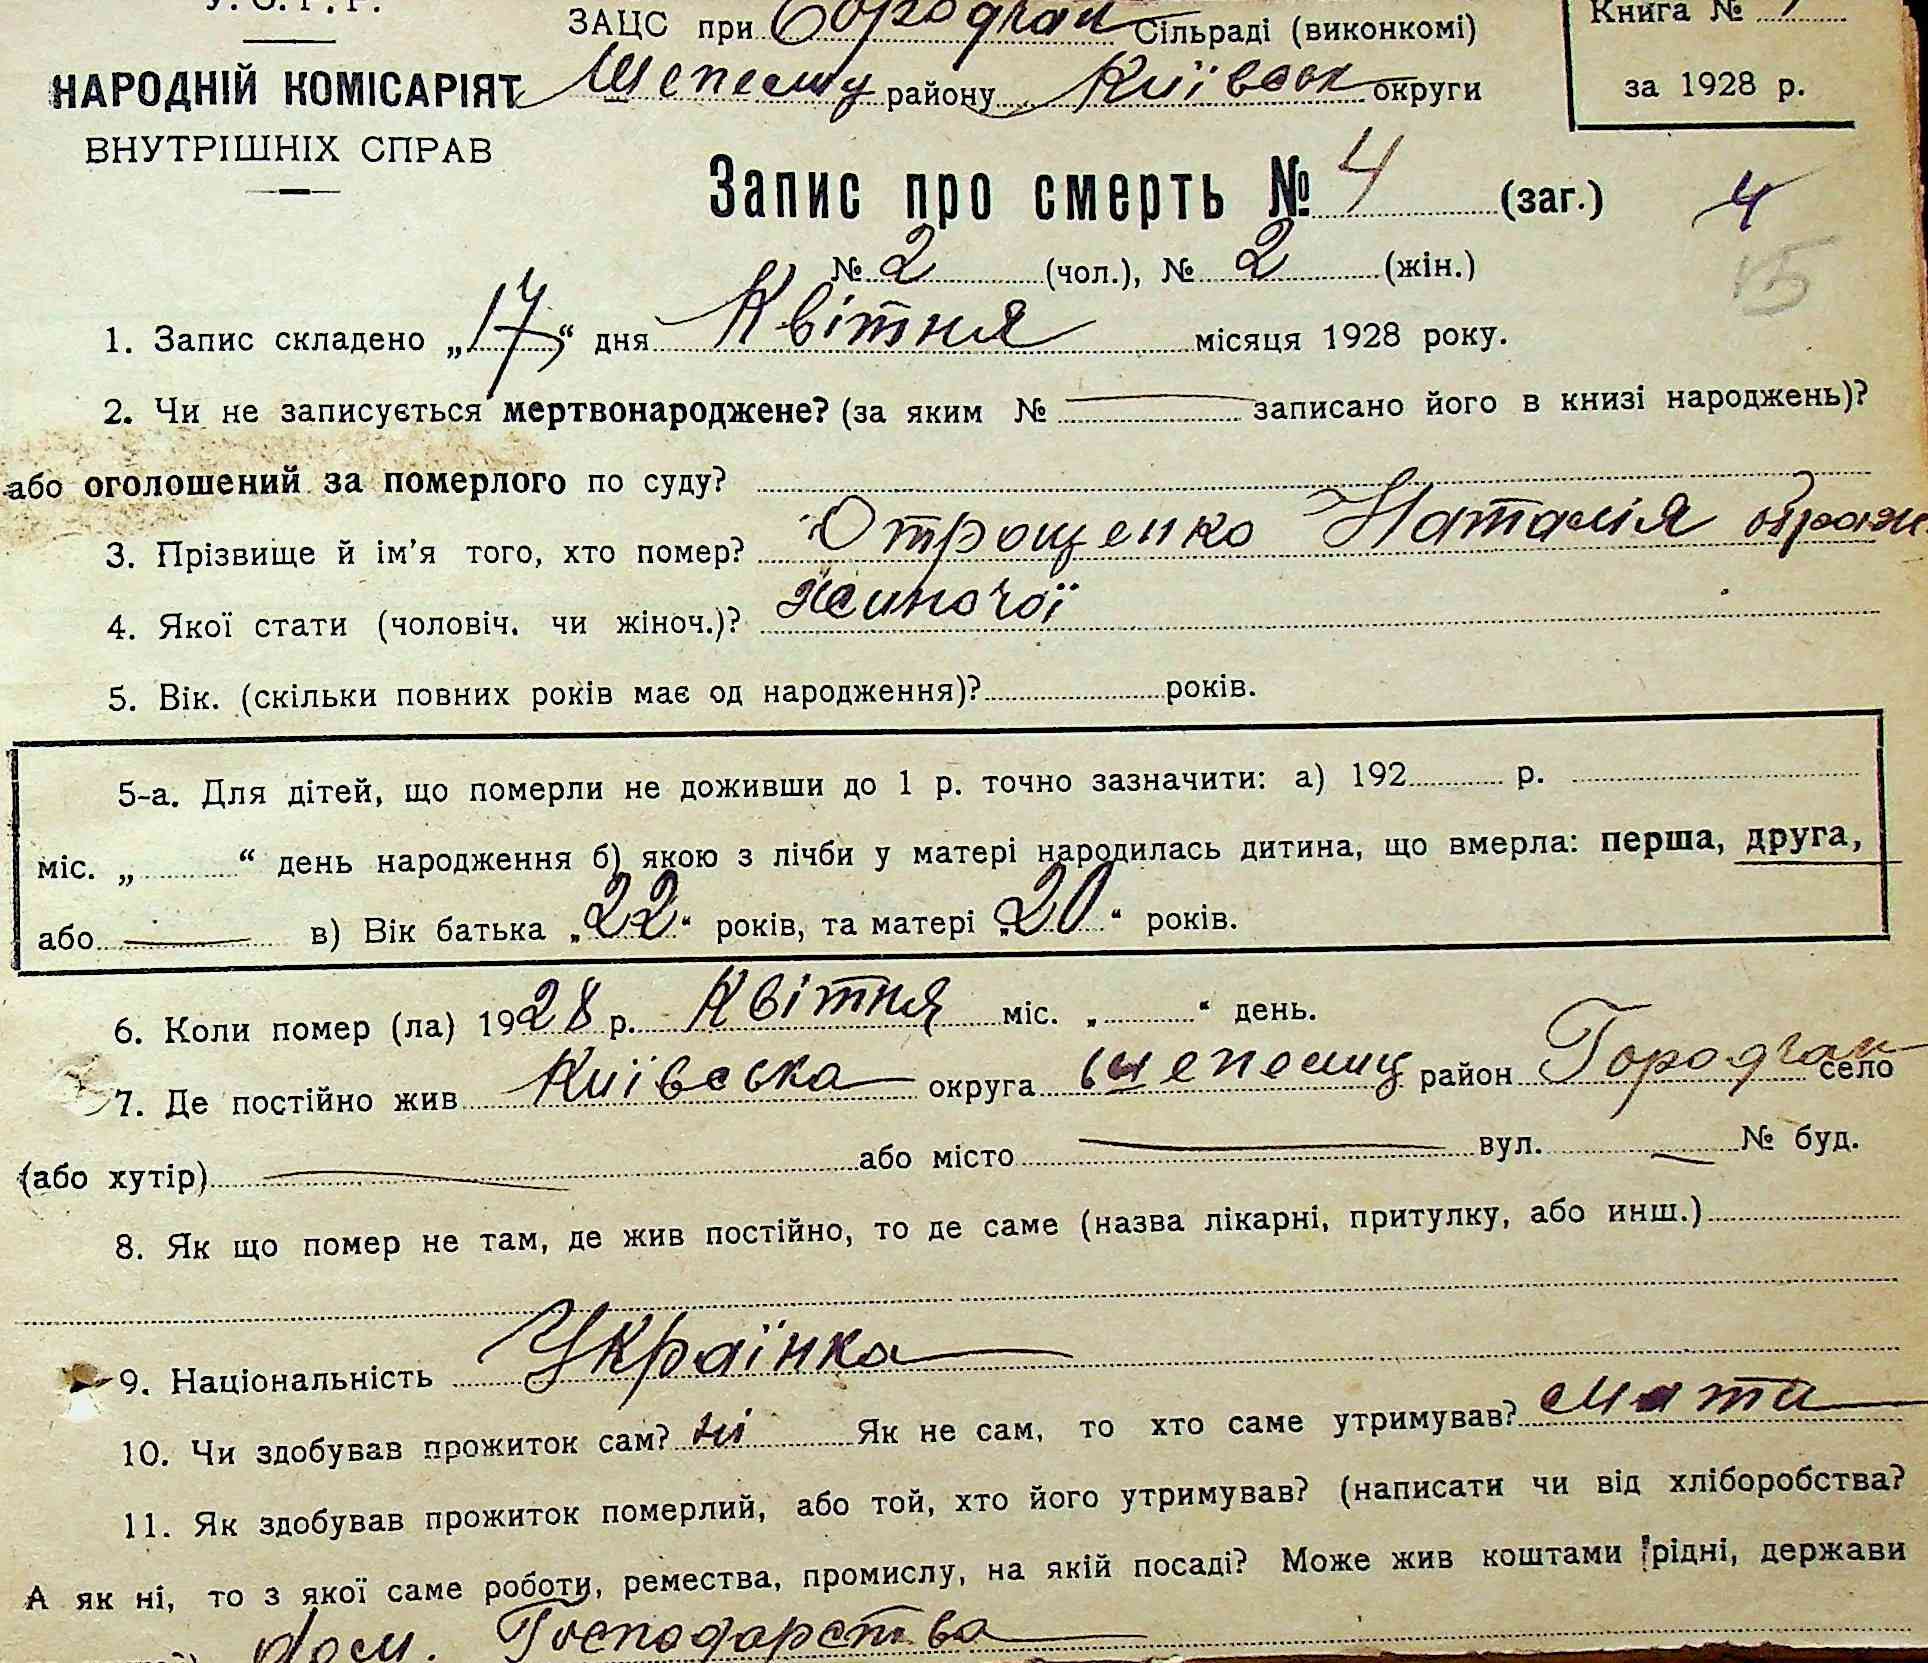 У. С. Р. Р.
ЗАЦС при Городчан Сільраді (виконкомі)
Книга №
НАРОДНІЙ КОМІСАРІЯТ
району Київськ округи
за 1928 р.
ВНУТРІШНІХ СПРАВ
Запис про смерть № 4 (заг.)
4
№ 2 (чол.), № 2 (жін.)
15
1. Запис складено „17“ дня Квітня місяця 1928 року.
2. Чи не записується мертвонароджене? (за яким № записано його в книзі народжень)?
або оголошений за померлого по суду?
3. Прізвище й ім'я того, хто помер? Отрощенко Наталія
4. Якої стати (чоловіч. чи жіноч.)? жиночої
5. Вік. (скільки повних років має од народження)? років.
5-а. Для дітей, що померли не доживши до 1 р. точно зазначити: а) 192 р.
міс. „ “ день народження б) якою з лічби у матері народилась дитина, що вмерла: перша, друга,
або в) Вік батька „22“ років, та матері „20“ років.
6. Коли помер (ла) 1928 р. Квітня міс. „ “ день.
7. Де постійно жив Київська округа район Городчан село
(або хутір) або місто вул. № буд.
8. Як що помер не там, де жив постійно, то де саме (назва лікарні, притулку, або инш.)
9. Національність Українка
10. Чи здобував прожиток сам? ні Як не сам, то хто саме утримував? мати
11. Як здобував прожиток померлий, або той, хто його утримував? (написати чи від хліборобства?
А як ні, то з якої саме роботи, ремества, промислу, на якій посаді? Може жив коштами рідні, держави
дом. Господарства